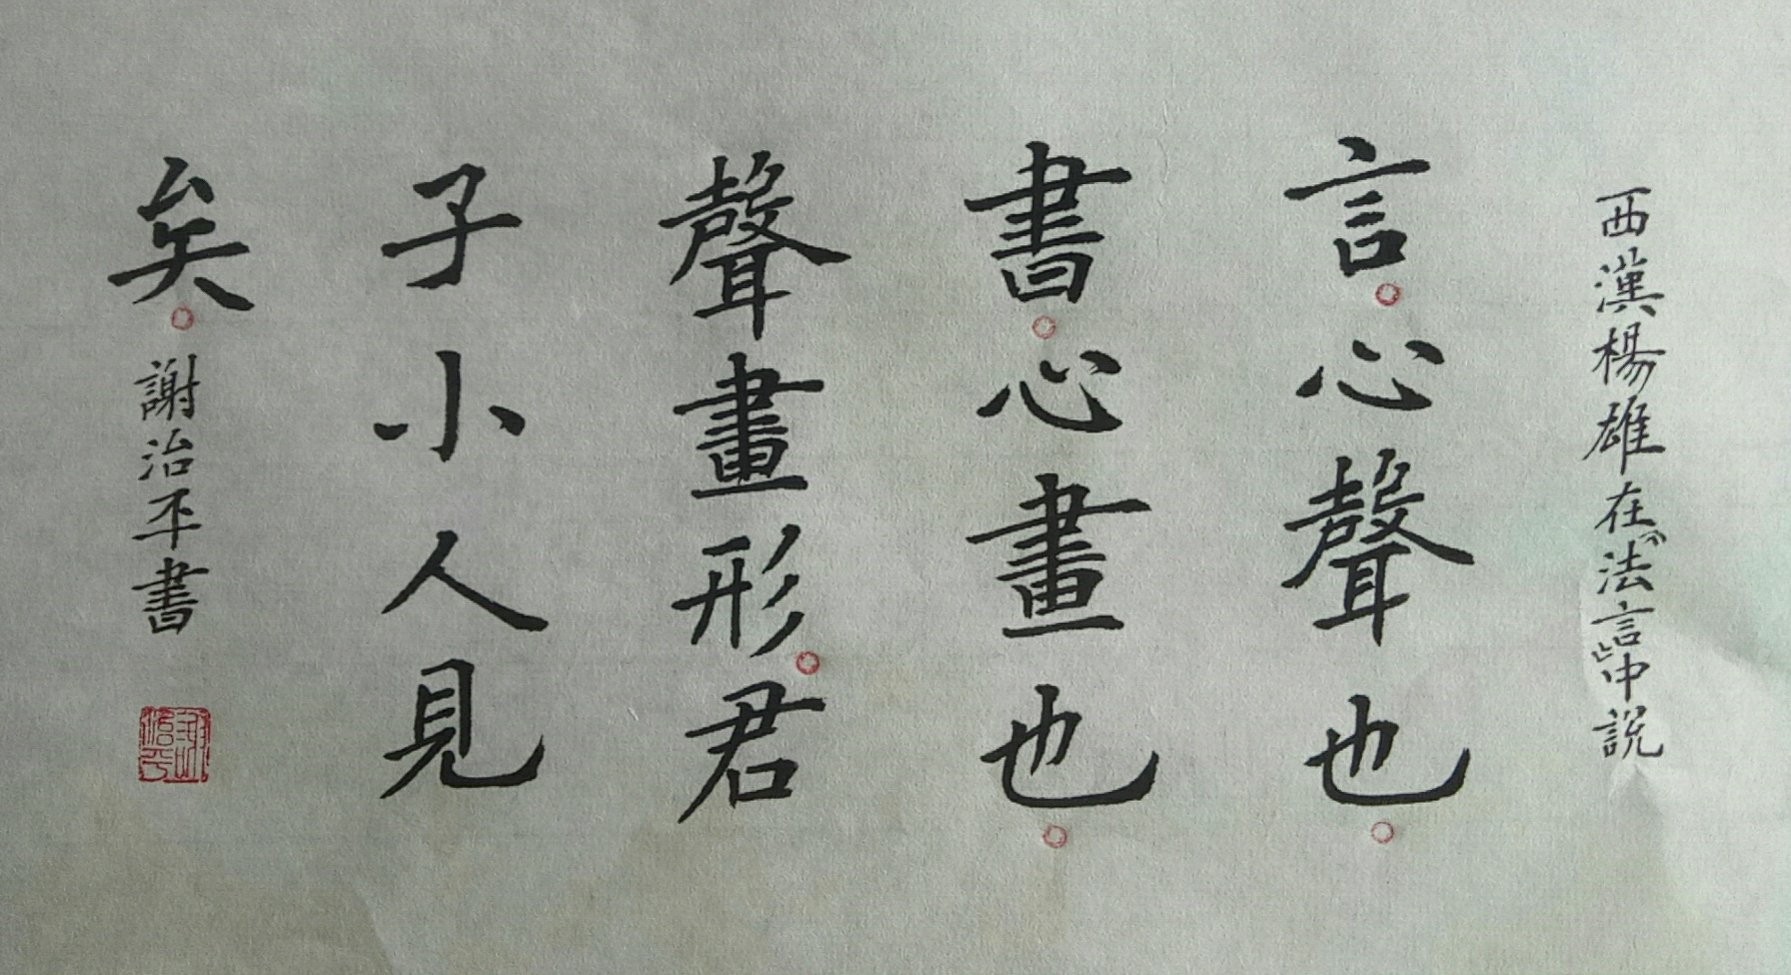 西漢楊雄在《法言》中說
言。心聲也。
書。心畫也。
聲畫形。君
子小人見
矣。謝治平書
謝治平